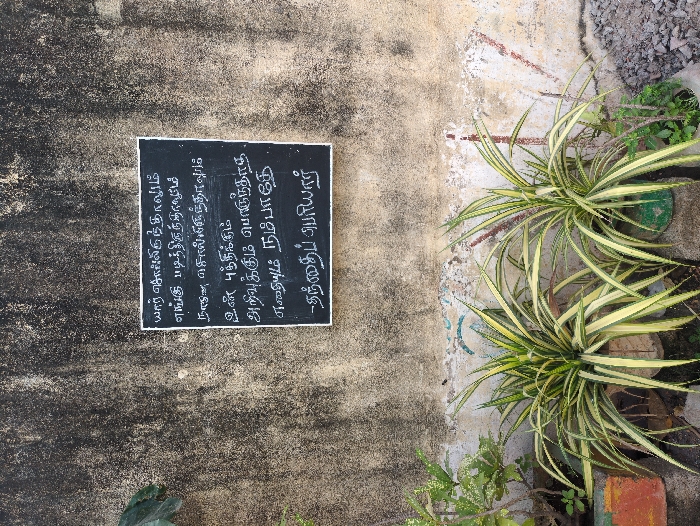 யார் சொல்லியிருந்தாலும்
எங்கு படித்திருந்தாலும்
நானே சொல்லியிருந்தாலும்
உன் புத்திக்கும்
அறிவுக்கும் பொருந்தாத
எதையும் நம்பாதே
-தந்தைப் பெரியார்